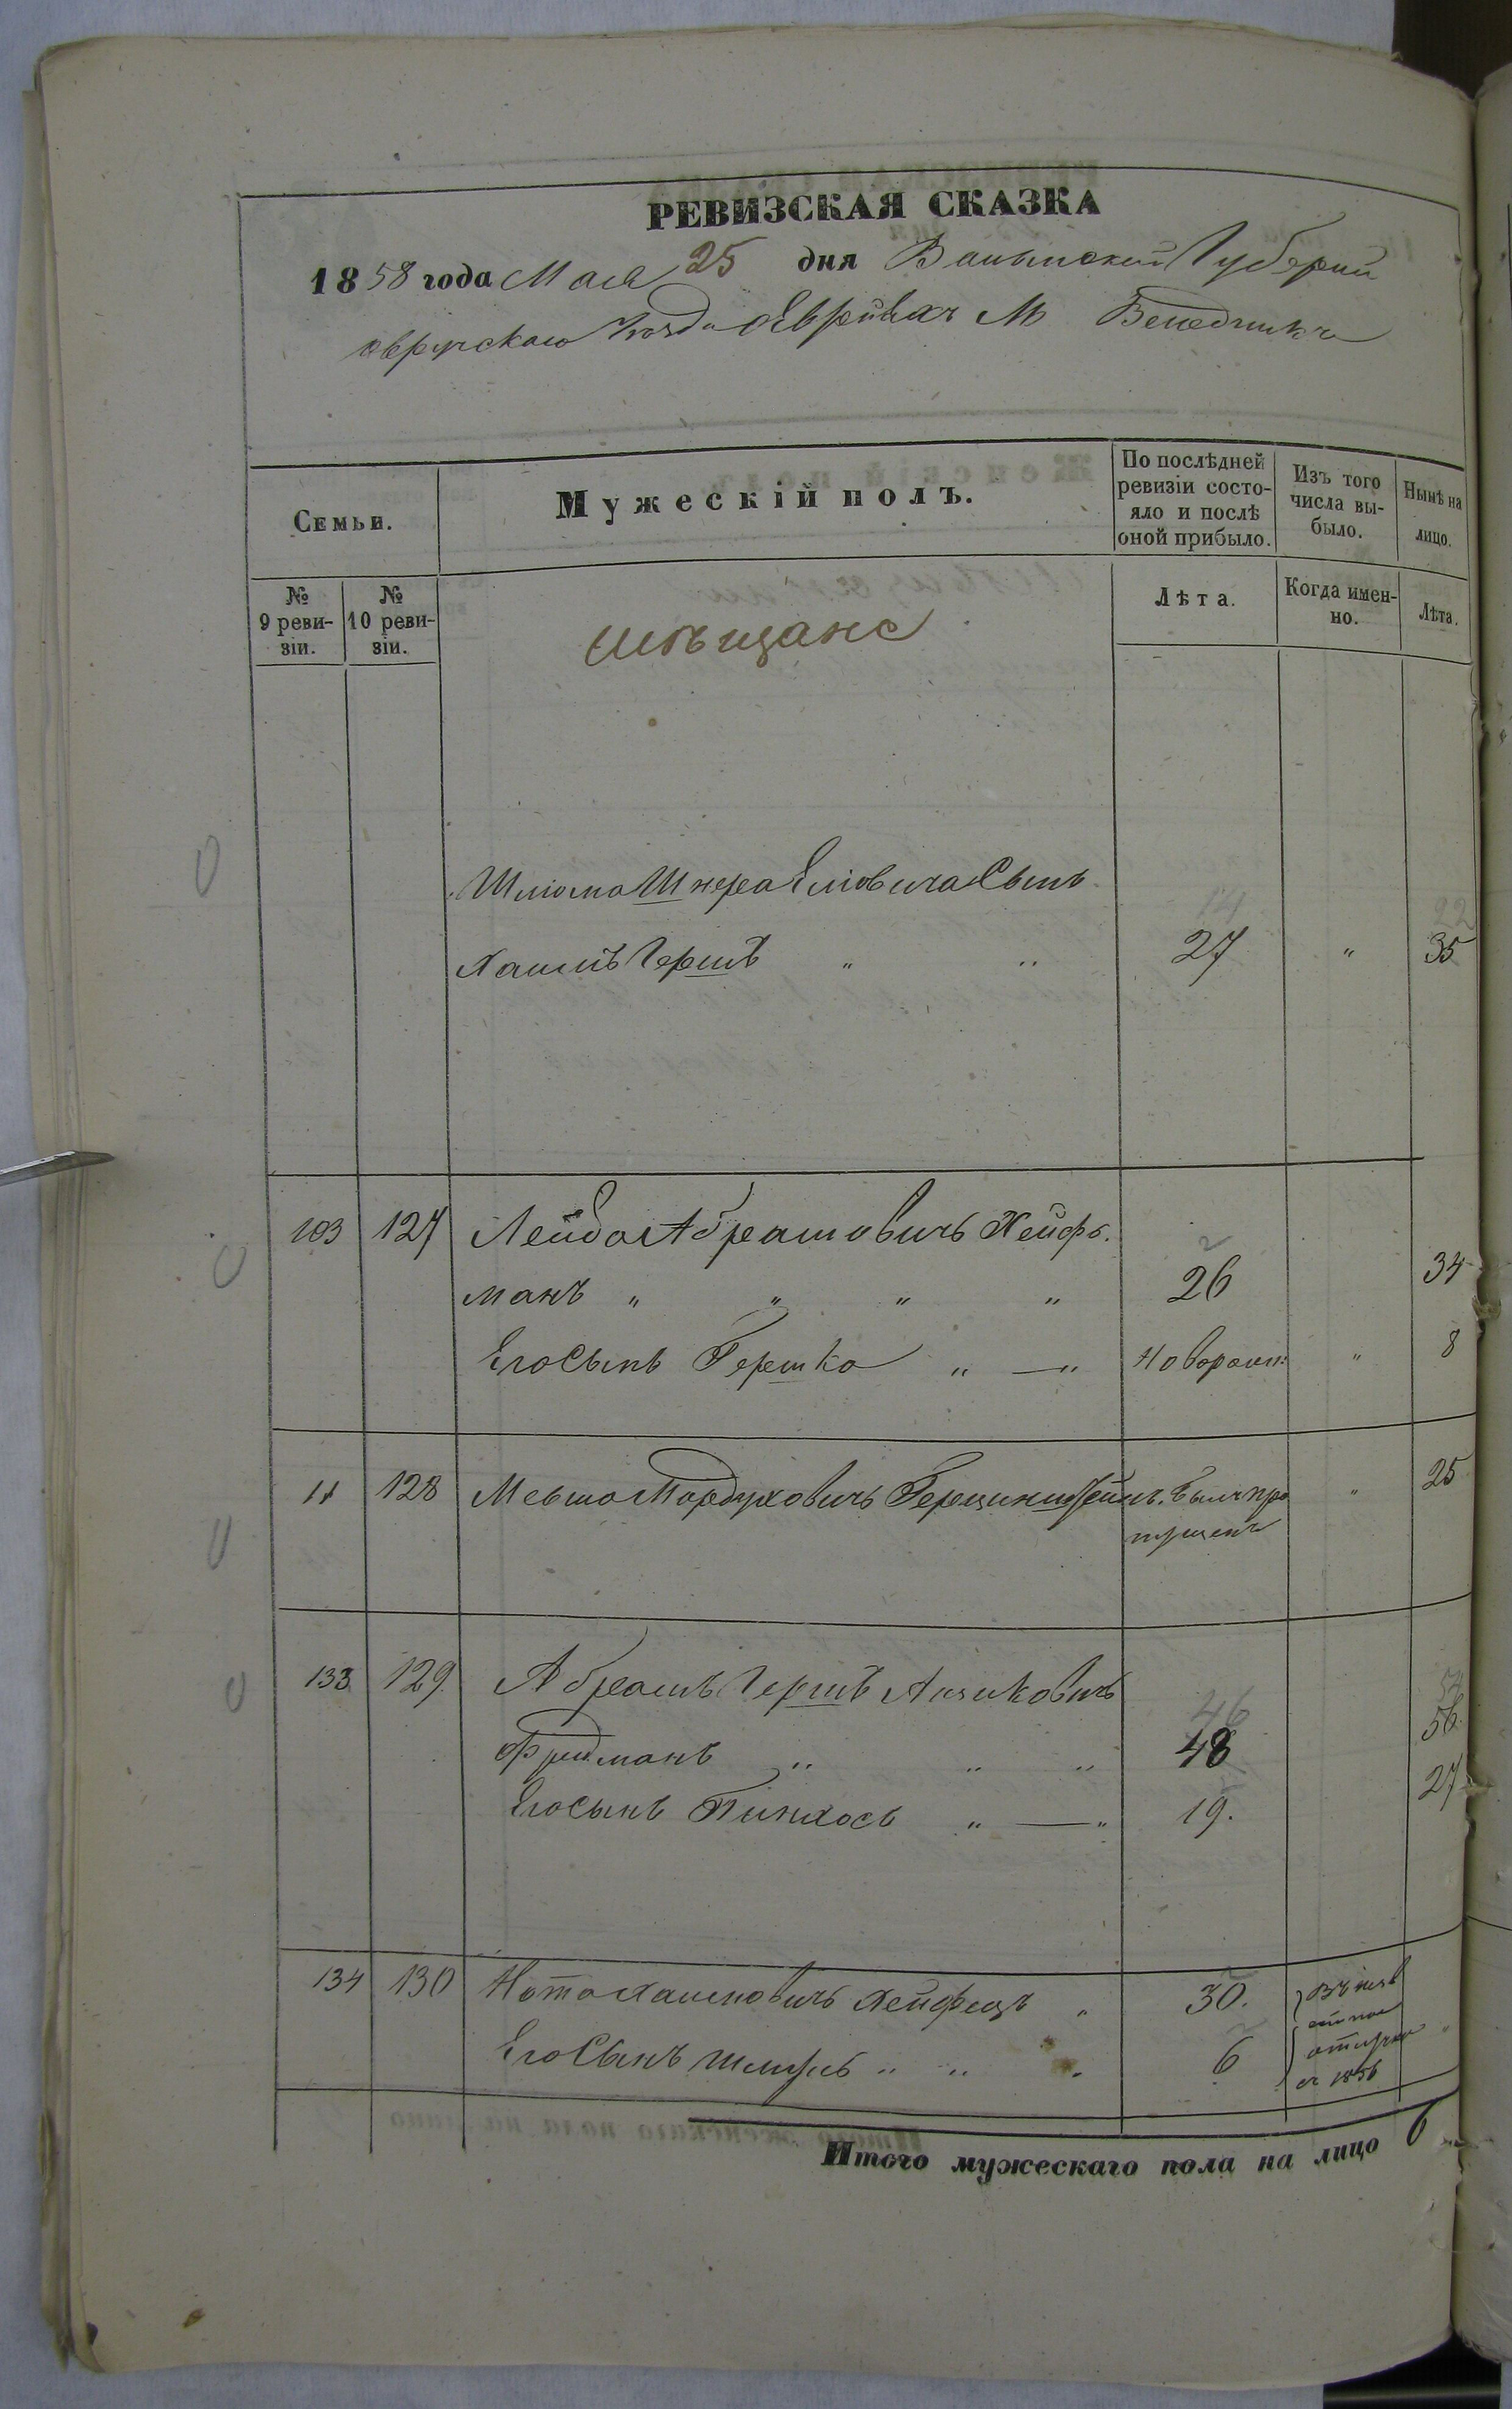 РЕВИЗСКАЯ СКАЗКА
1858 года Мая 25 дня Волынской Губернии
Овручскаго Уезда о Евреяхъ М Веледникъ
Семьи.
Мужескій полъ.
По послѣдней ревизіи состояло и послѣ оной прибыло.
Изъ того числа выбыло.
Нынѣ на лицо.
№ 9 ревизіи.
№ 10 ревизіи.
Лѣта.
Когда именно.
Лѣта.
Мѣщане
Шліома Шнера Еліовича Сынъ
Хаимъ Гершъ " " 27 " 35
103 127 Лейба Абрамовичъ Хейфъ
манъ " " " " 26 34
Его Сынъ Гершко " — " Новорожд: " 8
11 128 Мевша Мордуховичъ был про " 25
пущенъ
133 129 Абрамъ Гершъ Айзиковичъ
Фридманъ " " " 48 56
Его Сынъ Пинхосъ " — " 19. 27
134 130 Нота Хаимовичъ Хейфецъ " 30. Въ неизв
Его Сынъ Шмуль " " " 6 отлучке
съ 1856
Итого мужескаго пола на лицо 6